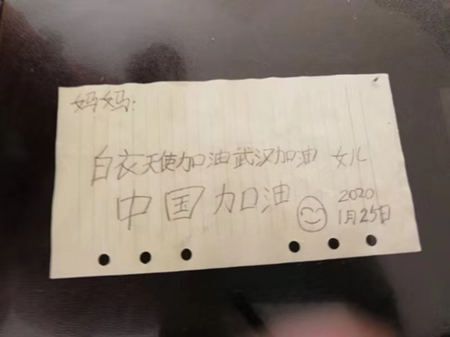 妈妈:
白衣天使加油武汉加油 女儿
中国加油 2020
1月25日